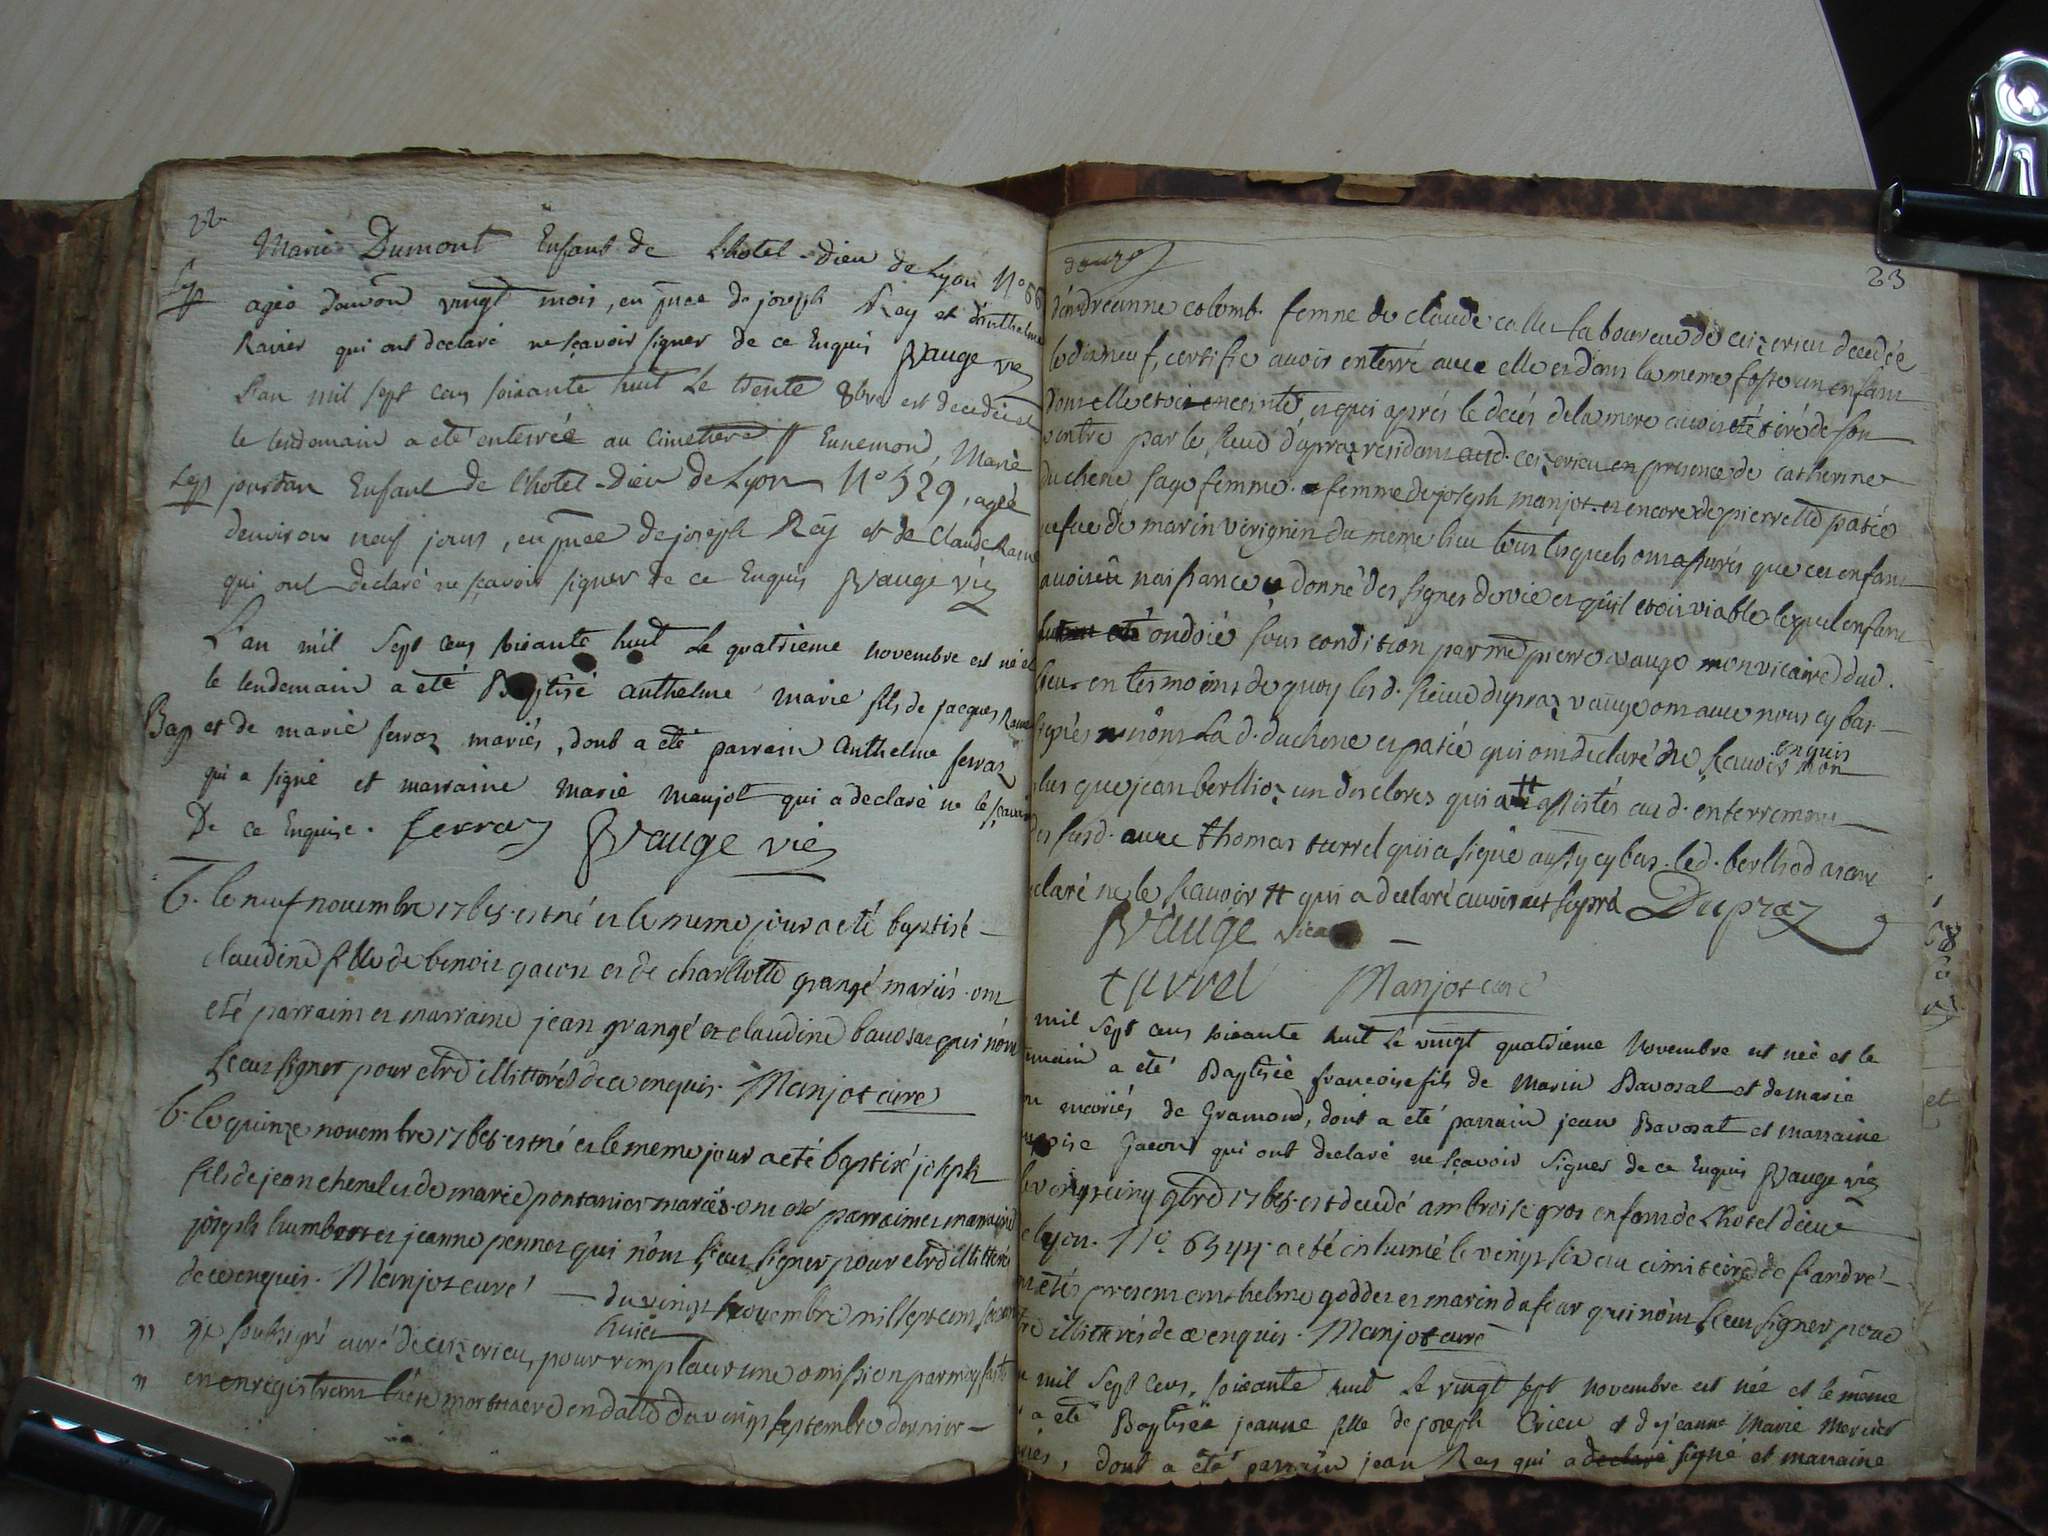 22
Marie Dumont Enfant de l'hotel-Dieu de Lyon N° 66
Sep
ageé d'environ vingt mois, en pnce de joseph Rey et d'anthelme
Ravier qui ont declaré ne sçavoir signer de ce Enquis Vauge vic
L'an mil sept cens soixante huit Le trente 8bre est decedeé et
le lendemain a eté enterreé au cimetiere st Ennemond, Marie
Sep
jourdan Enfant de l'hotel-Dieu de Lyon N° 529, ageé
d'environ neuf jours, en pnce de joseph Rey et de Claude
qui ont declaré ne sçavoir signer de ce Enquis Vauge vic
L'an mil sept cens soixante huit Le quatrieme novembre est né et
le lendemain a eté Baptisé anthelme marie fils de jacques
Bap
et de marie ferraz mariés, dont a eté parrain anthelme ferraz
qui a signé et marraine marie manjot qui a declaré ne le sçavoir
De ce Enquise. ferraz Vauge vic
b. le neuf novembre 1768 est né et le meme jour a eté baptisé
claudine fille de benoit gacon et de charllotte grangé mariés. ont
eté parrain et marraine jean grangé et claudine bavosat qui n'ont
sceu signer pour etre illitterés de ce enquis. Manjot curé
b. le quinze novembre 1768 est né et le meme jour a eté baptisé joseph
fils de jean chenel et de marie pontanier mariés. ont eté parrain et marraine
joseph humbert et jeanne pennet qui n'ont sceu signer pour etre illitterés
de ce enquis. Manjot curé — du vingt novembre mil sept cent soixante
huit
" je soussigné curé de ceizerieu, pour remplacer une omission par moy faite
" en enregistrant l'acte mortuaire en datte du vingt septembre dernier —
23
douze
d'andreanne colomb. femme de claude callet laboureur de ceizerieu decedée
le dix neuf, certifie avoir enterré avec elle et dans la meme fosse un enfant
dont elle etoit enceinte, et qui aprés le decés de la mere avoit eté tiré de son
ventre par le sieur dupraz residant aud. ceizerieu en presence de catherine
duchene sage femme. femme de joseph manjot. et encore de pierrette patée
vefue de marin verignin du meme lieu tous lesquels ont assurés que cet enfant
avoit eû naissance donné des signes de vie et qu'il etoit viable lequel enfant
ondoié sous condition par me pierre vauge mon vicaire dud.
lieu. en tesmoins de quoy lesd. sieur dupraz vauge ont avec nous cy bas
signés non la d. duchene et patée qui ont declaré ne scavoir enquis non
plus que jean berllioz un des clercs qui a assistés aud. enterrement
des susd. avec thomas turrel qui a signé aussy cy bas. led. berllioz aiant
declaré ne le scavoir qui a declaré avoir Dupraz
Vauge vicaire
turrel Manjot curé
mil sept cens soixante huit Le vingt quatrieme Novembre est née et le
lendemain a eté Baptisée francoise fils de Marin Bavosat et de marie
mariés de Gramond, dont a eté parrain jean Bavosat et marraine
Jacout qui ont declaré ne sçavoir signer de ce Enquis Vauge vic
le vingt cinq 9bre 1768 est decedé ambroise gros enfant de l'hotel dieu
de lyon. N° 6544. a eté inhumé le vingt six au cimitiere de st andré
ont etés presents anthelme goddet et marin dufour qui n'ont sceu signer pour
etre illitterés de ce enquis. Manjot curé
mil sept cens soixante huit Le vingt sept novembre est née et le même
a eté Baptisée jeanne fille de joseph Crieu et de jeanne Marie Mercier
mariés, dont a eté parrain jean Rey qui a declaré signé et marraine